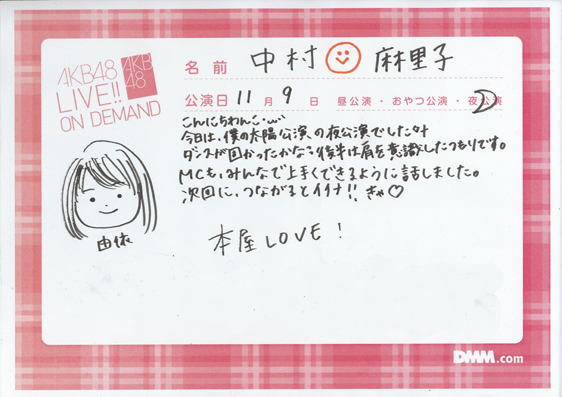 AKB48
LIVE!!
ON DEMAND
AKB
48
名前 中村 麻里子
公演日 11月9日 昼公演・おやつ公演・夜公演
こんにちわんこ・ω・
今日は、僕の太陽公演の夜公演でした
ダンスが固かったかな?後半は肩を意識したつもりです。
MCも、みんなで上手くできるように話しました。
次回に、つながるとイイナ!! きゃ♡
由依
本屋LOVE!
DMM.com